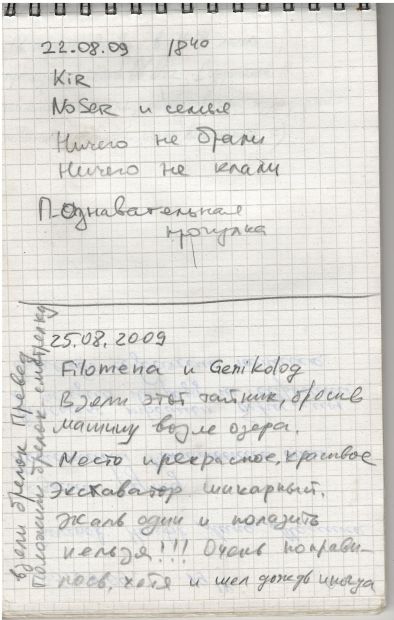 22.08.09 18⁴⁰
Kir
NoSer и семья
Ничего не брали
Ничего не клали
П-ознавательная
прогулка
25.08.2009
Filomena и Genikolog
Взяли этот тайник, бросив
машину возле озера.
Место прекрасное, красивое
Экскаватор шикарный.
Жаль один и полазить
нельзя!!! Очень понрави-
лось, хотя и шел дождь иногда
взяли брелок Превед
Положили брелок смотрелку